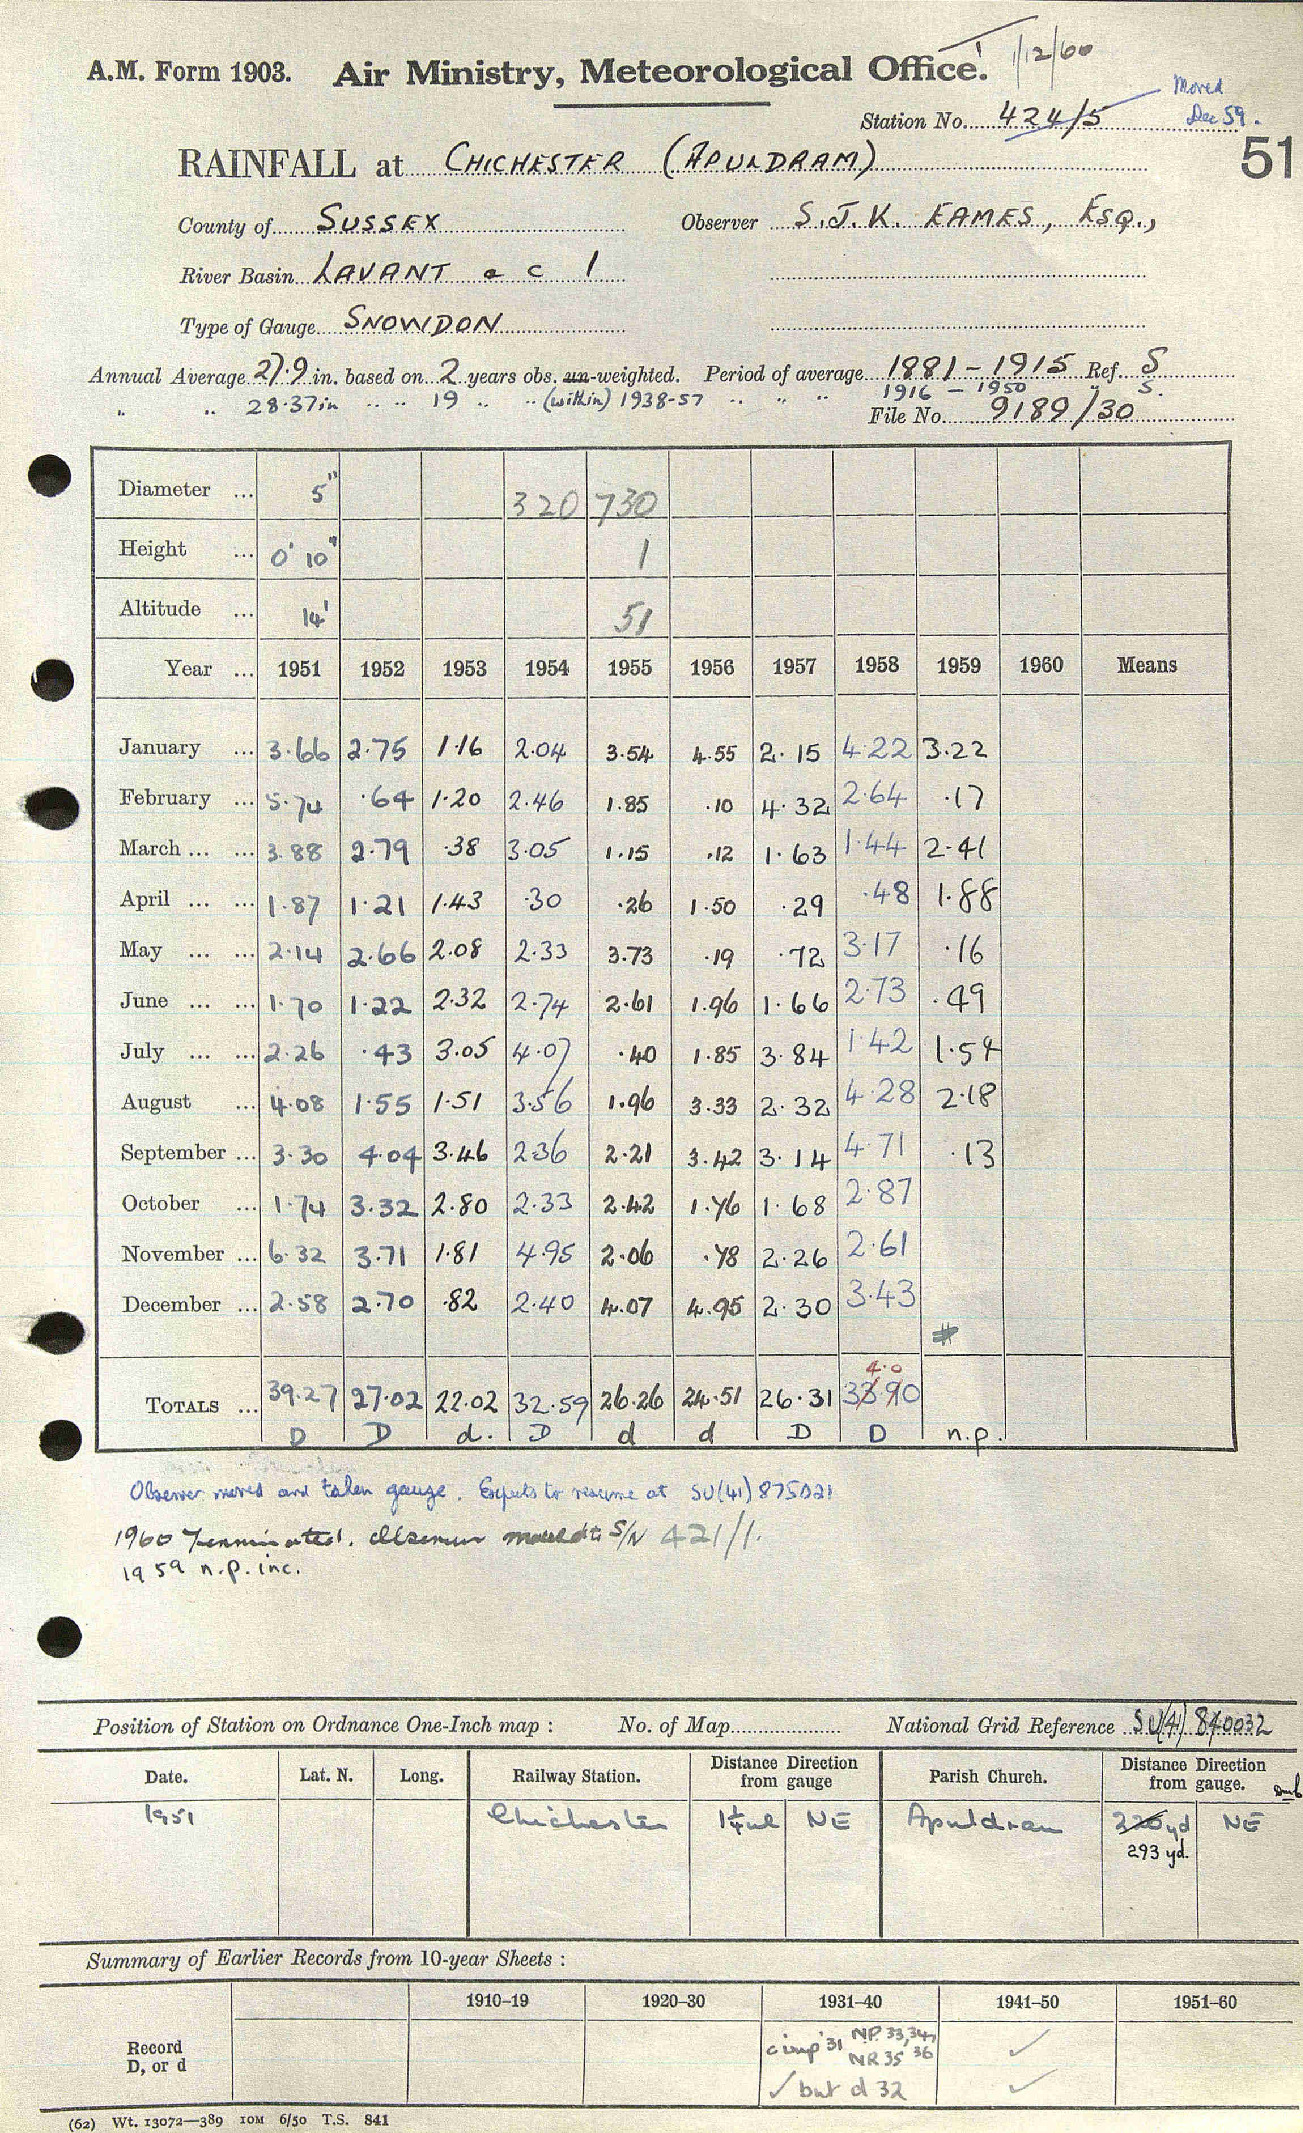 1/12/60
A.M. Form 1903. Air Ministry, Meteorological Office.
Moved
Station No. 424/5 Dec 59.
51
RAINFALL at CHICHESTER (APULDRAM)
County of SUSSEX Observer S.J.K. EAMES, ESQ.,
River Basin LAVANT a c 1
Type of Gauge SNOWDON
Annual Average 27.9 in. based on 2 years obs. un-weighted. Period of average 1881-1915 Ref. S
" " 28.37in " " 19 " " (within) 1938-57 " " " 1916-1950 " S.
File No. 9189/30
Diameter ... 5" 320 730
Height ... 0' 10" 1
Altitude ... 14' 51
Year ... 1951 1952 1953 1954 1955 1956 1957 1958 1959 1960 Means
January ... 3.66 2.75 1.16 2.04 3.54 4.55 2.15 4.22 3.22
February ... 5.74 .64 1.20 2.46 1.85 .10 4.32 2.64 .17
March ... ... 3.88 2.79 .38 3.05 1.15 .12 1.63 1.44 2.41
April ... ... 1.87 1.21 1.43 .30 .26 1.50 .29 .48 1.88
May ... ... 2.14 2.66 2.08 2.33 3.73 .19 .72 3.17 .16
June ... ... 1.70 1.22 2.32 2.74 2.61 1.96 1.66 2.73 .49
July ... ... 2.26 .43 3.05 4.07 .40 1.85 3.84 1.42 1.54
August ... 4.08 1.55 1.51 3.56 1.96 3.33 2.32 4.28 2.18
September ... 3.30 4.04 3.46 2.36 2.21 3.42 3.14 4.71 .13
October ... 1.74 3.32 2.80 2.33 2.42 1.76 1.68 2.87
November ... 6.32 3.71 1.81 4.95 2.06 .78 2.26 2.61
December ... 2.58 2.70 .82 2.40 4.07 4.95 2.30 3.43
#
4.0
TOTALS ... 39.27 27.02 22.02 32.59 26.26 24.51 26.31 33.90
D D d. D d d D D n.p.
Observer moved and taken gauge. Expects to resume at SU(41)875021
1960 Terminated. Observer moved to S/N 421/1.
1959 n.p. inc.
Position of Station on Ordnance One-Inch map : No. of Map National Grid Reference SU(41) 840032
Date. Lat. N. Long. Railway Station. Distance from gauge Direction Parish Church. Distance from gauge. Direction
1951 Chichester 1¼ml NE Apuldram 220 yd NE
293 yd.
Summary of Earlier Records from 10-year Sheets :
1910-19 1920-30 1931-40 1941-50 1951-60
Record
D, or d
NP 33,34,
NR 35 36
✓ but d 32 ✓
(62) Wt. 13072—389 10M 6/50 T.S. 841